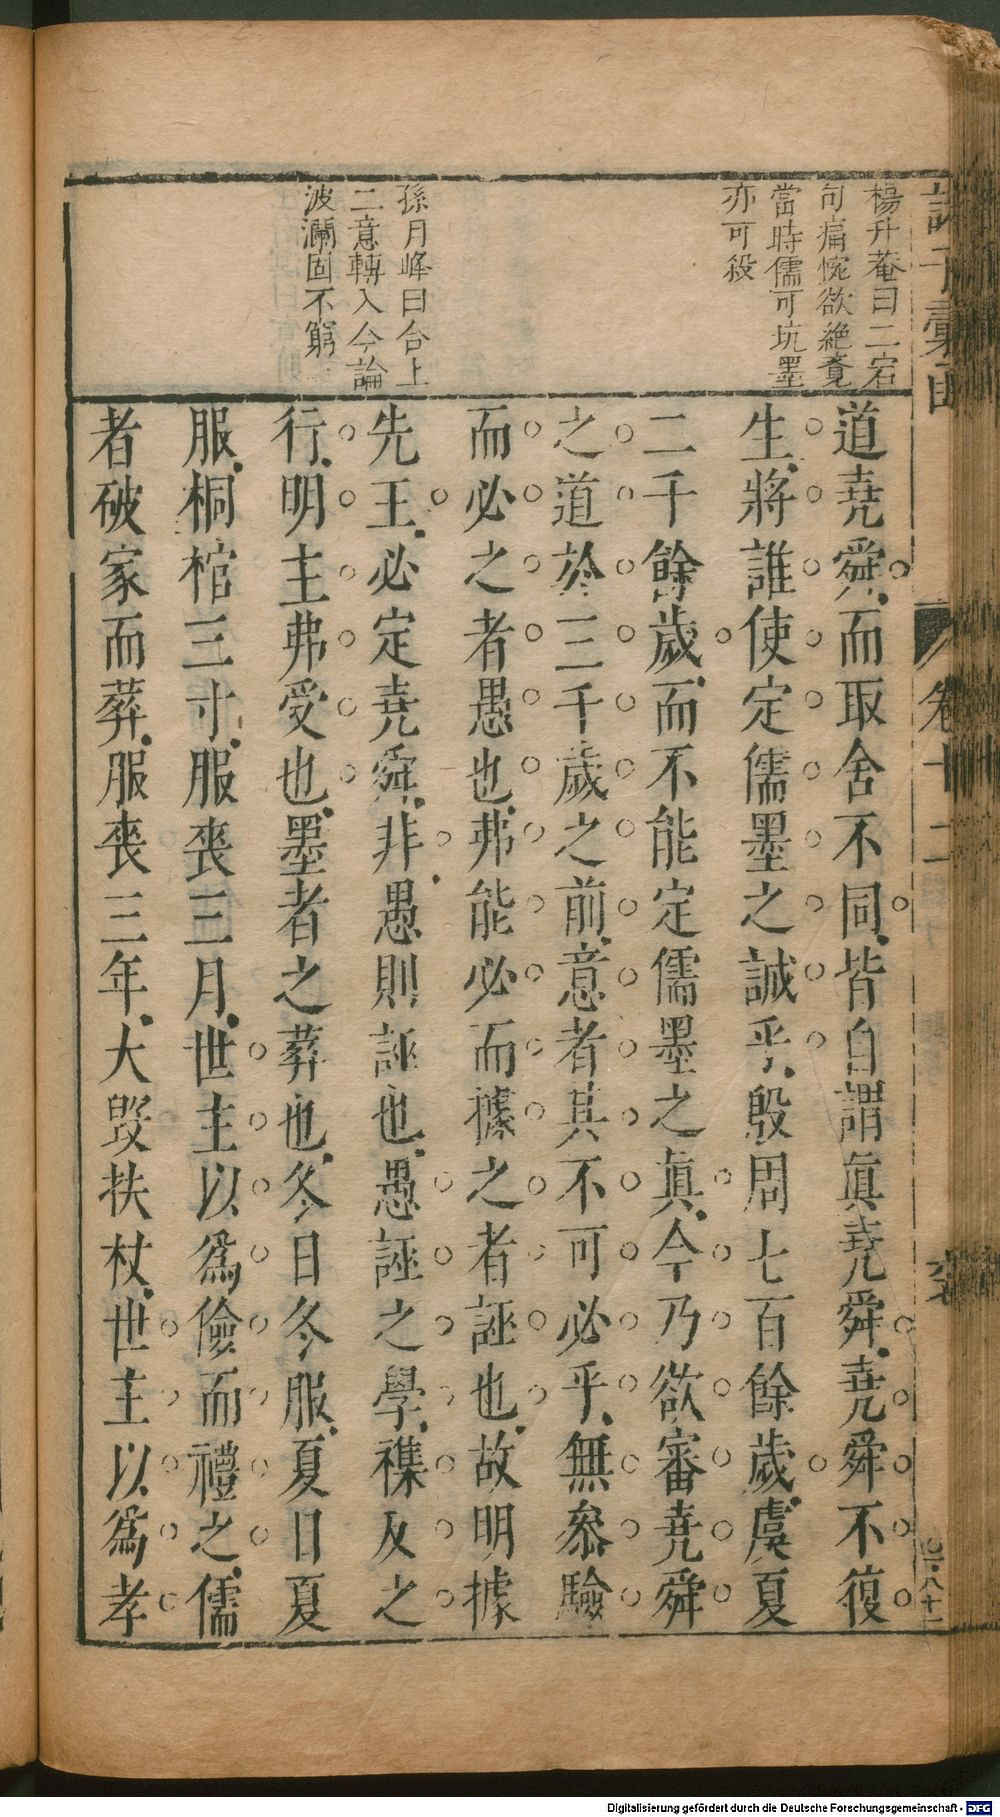 楊升菴曰二宕
句痛惋欲絶竟
當時儒可坑墨
亦可殺
孫月峰曰合上
二意轉入今論
波瀾固不窮
道堯舜而取舍不同皆自謂眞堯舜堯舜不復
生將誰使定儒墨之誠乎殷周七百餘歲虞夏
二千餘歲而不能定儒墨之眞今乃欲審堯舜
之道於三千歲之前意者其不可必乎無參驗
而必之者愚也弗能必而據之者誣也故明據
先王必定堯舜非愚則誣也愚誣之學襍反之
行明主弗受也墨者之葬也冬日冬服夏日夏
服桐棺三寸服喪三月世主以爲儉而禮之儒
者破家而葬服喪三年大毀扶杖世主以爲孝
卷十二
Digitalisierung gefördert durch die Deutsche Forschungsgemeinschaft - DFG